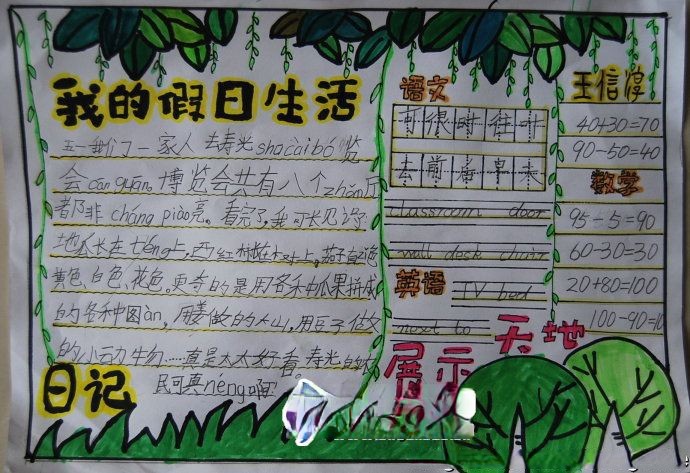 我的假日生活
五一我们一家人去寿光shacaibó览
会canguān。博览会共有八个zhǎn厅
都非cháng piào亮。看完了,我可长见识了
地瓜长在téng上,西红柿长在树上,茄子有
黄色、白色、花色。更奇的是用各种瓜果拼成
的各种图àn,用姜做的大山,用豆子做
的小动物……真是太太好看。寿光的农
民可真néng啊
日记
语文
很 时 往 叶
去 前 后 早 来
classroom door
wall desk chair
英语
TV bed
next to
展示天地
王信淳
40+30=70
90-50=40
数学
95-5=90
60-30=30
20+80=100
100-90=10